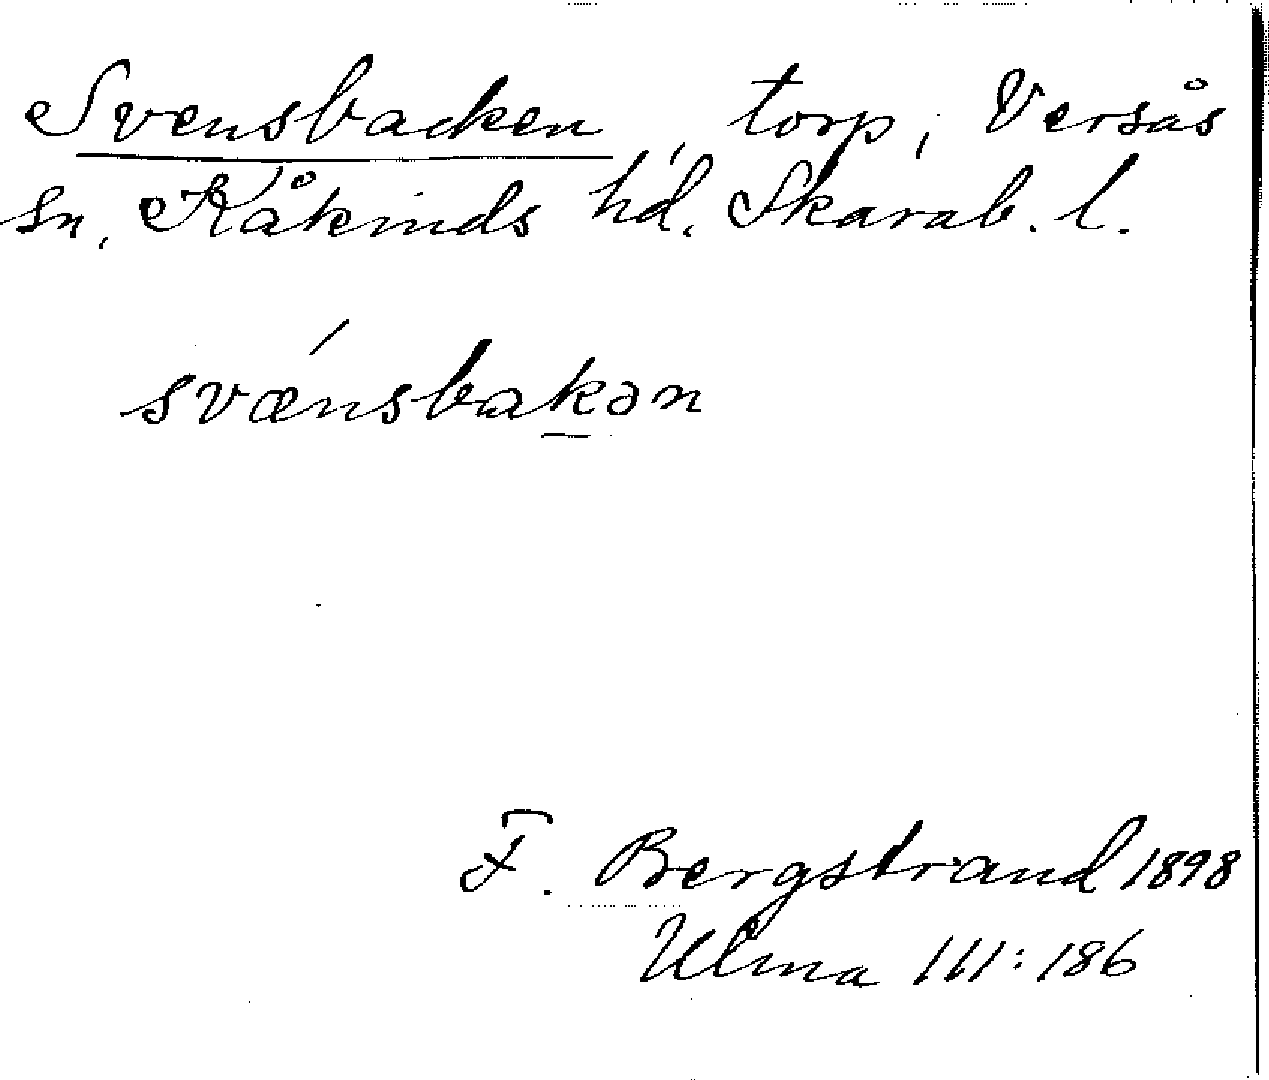 Svensbacken, torp, Versås
sn, Kåkinds hd. Skarab. l.
svǽnsbakən
F. Bergstrand 1898
Ulma 111:186